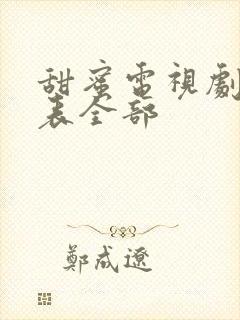 甜蜜電視劇
表全部
鄭成遼